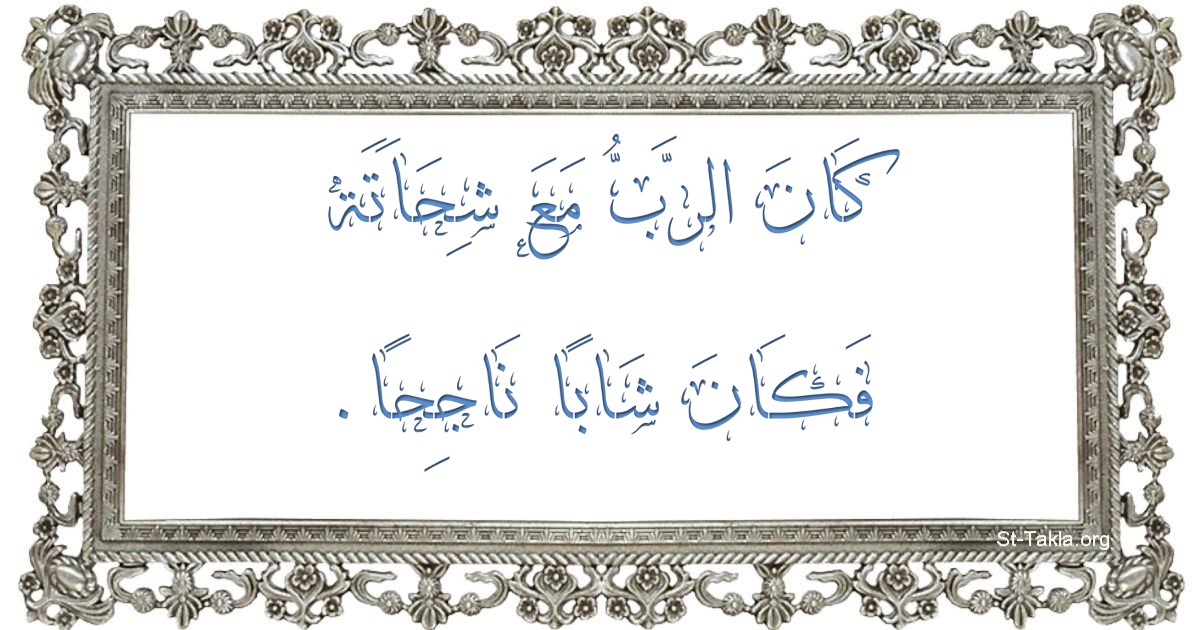 كَانَ الرَّبُّ مَعَ شِحَاتَةَ
فَكَانَ شَابًا نَاجِحًا .
St-Takla.org